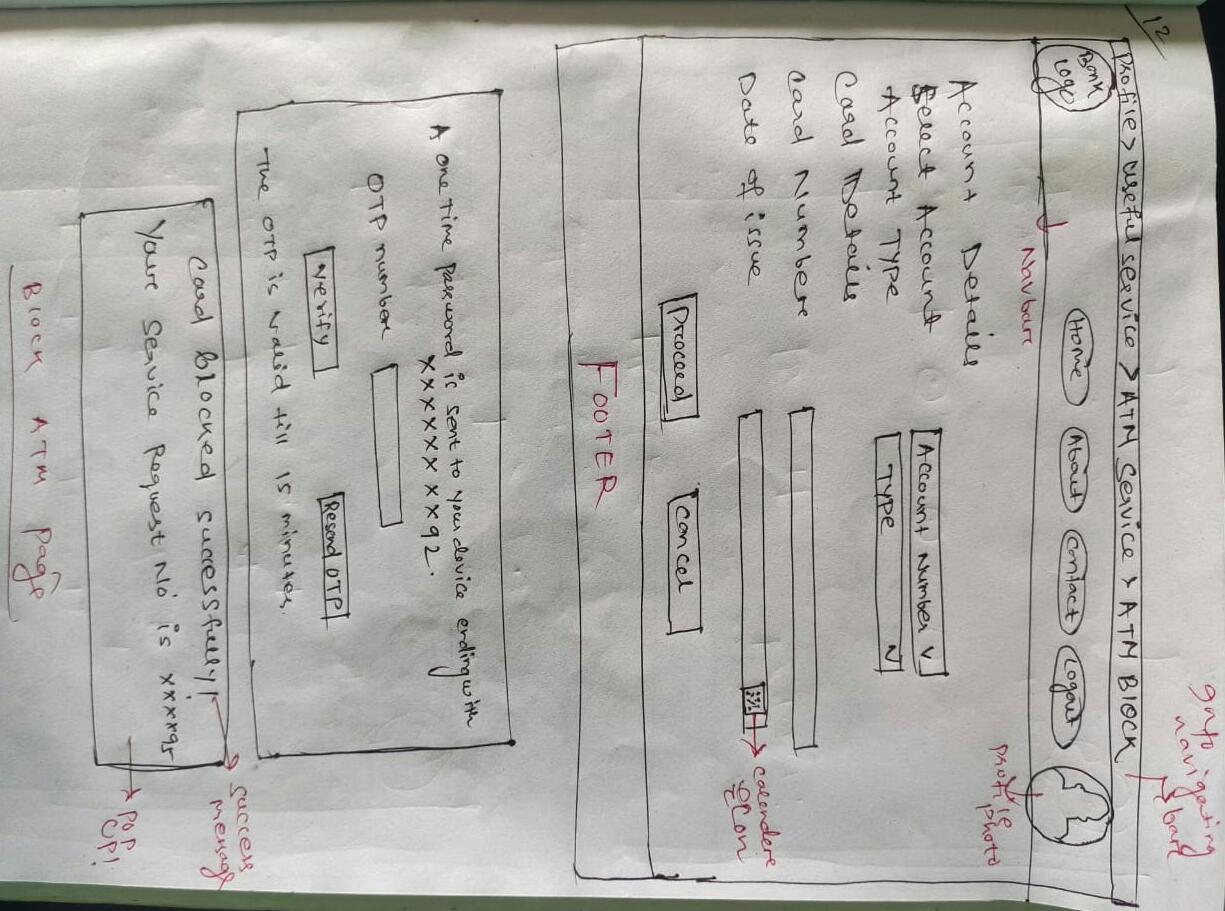 12
goto
navigating
bare
Profile > useful service > ATM Service > ATM BLOCK
Bank
Logo
Home
About
Contact
Logout
Navbare
profile
photo
Account Details
Select Account
Account Number V
Account Type
Type V
Card Details
Card Numbere
Date of issue
calendere
Icon
Proceed
Cancel
FOOTER
A one Time password is sent to your device ending with
xxxxxxxxx92.
OTP numbere
Verify
Resend OTP
The OTP is valid till 15 minutes.
success
message
Card Blocked successfully!
Youre Service Request No is xxxx95
POP
UP!
BLOCK ATM Page